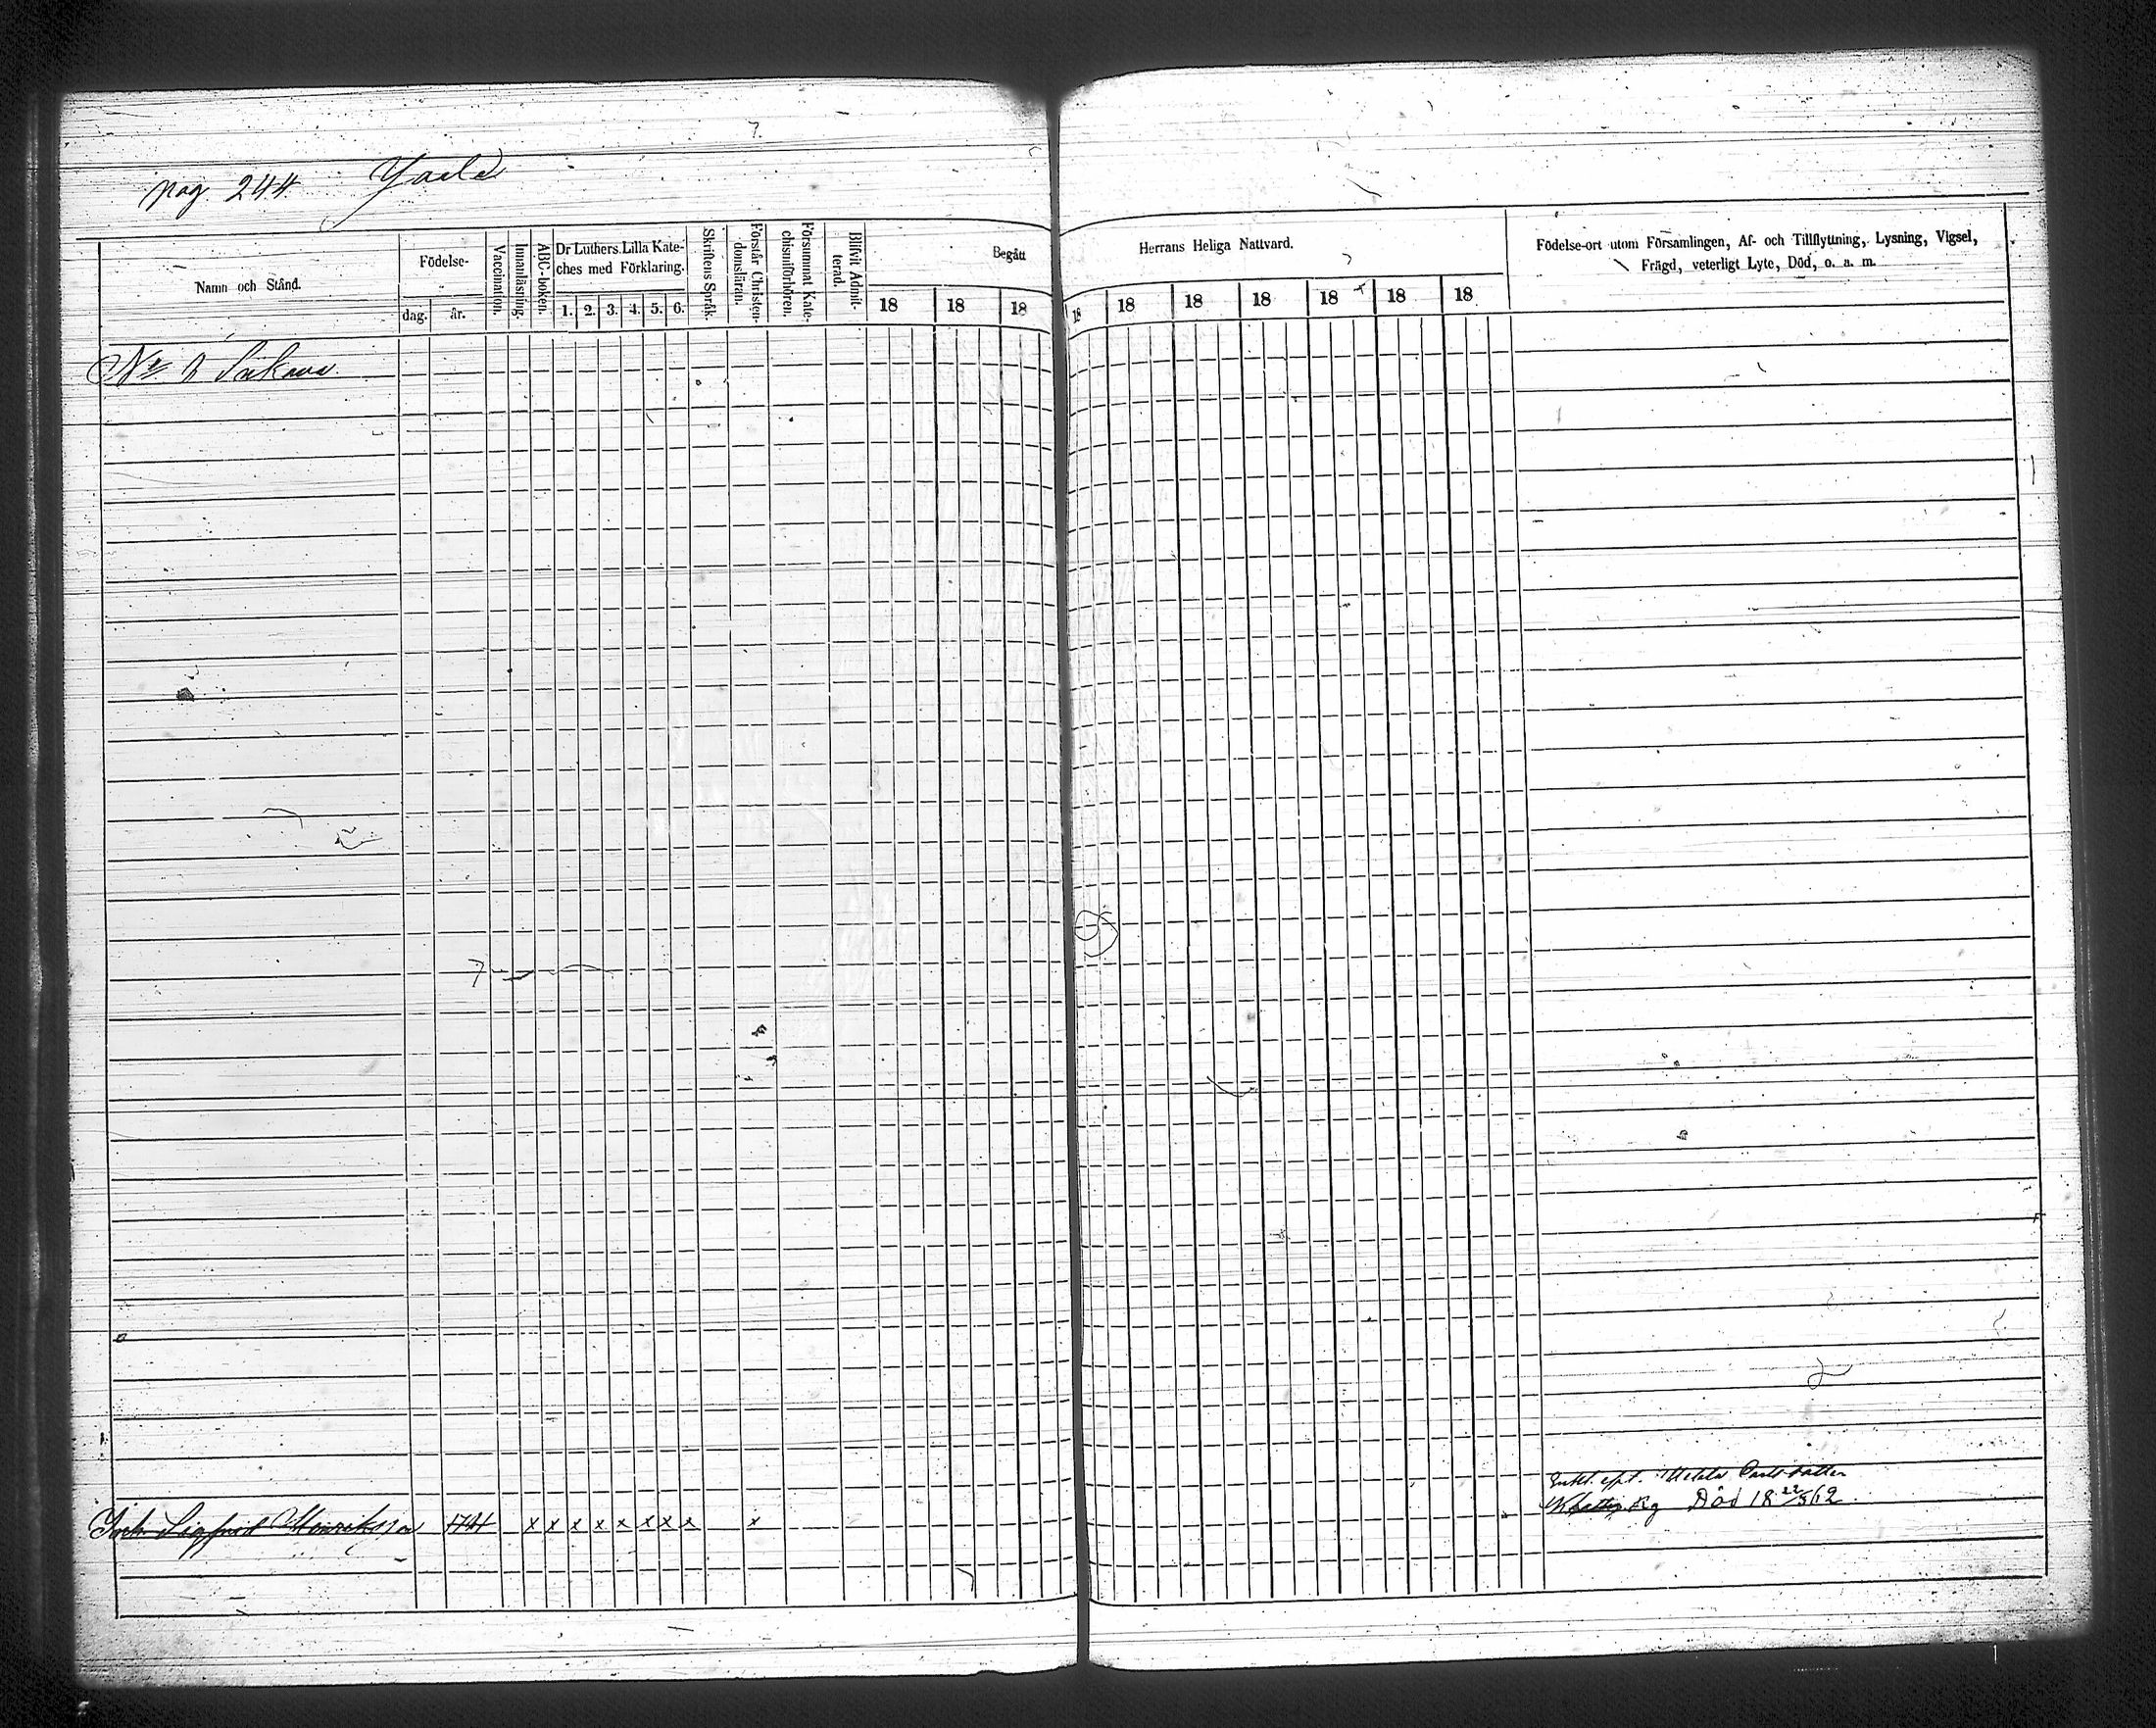 pag. 244.
Namn och Stånd.
Födelse-
dag.
år.
Vaccination.
Innanläsning.
ABC-boken.
Dr Luthers Lilla Kate-
ches med Förklaring.
1. 2. 3. 4. 5. 6.
Skriftens Språk.
Förstår Christen-
domsläran.
Försummat Kate-
chismiförhören.
Blifvit Admit-
terad.
Begått
18 18 18
Herrans Heliga Nattvard.
18 18 18 18 18 18 18
Födelse-ort utom Församlingen, Af- och Tillflyttning, Lysning, Vigsel,
Frägd, veterligt Lyte, Död, o. a. m.
Sigfred Henriksson x x x x x x x x x
Död 18 22/5 62.